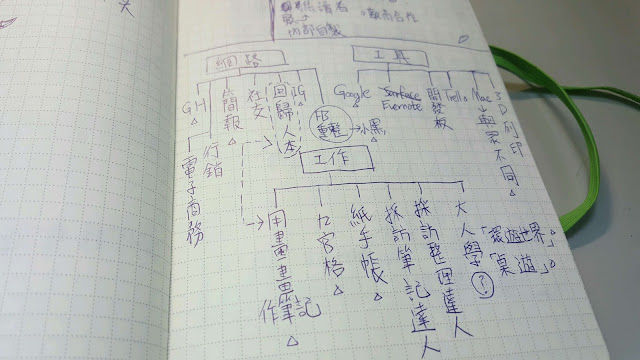 內部自裁
觀布合作
網路
GH
電子商務
行銷
簡報
社交
「回歸人本」
IG
FB
重整
小黑
工具
Google
Surface
Evernote
開發板
Trello
Mac
與眾不同
3D列印
工作
用畫畫
作筆記
九宮格
紙手帳
採訪筆記達人
採訪整理達人
大人學
?
「環遊世界」
「桌遊」